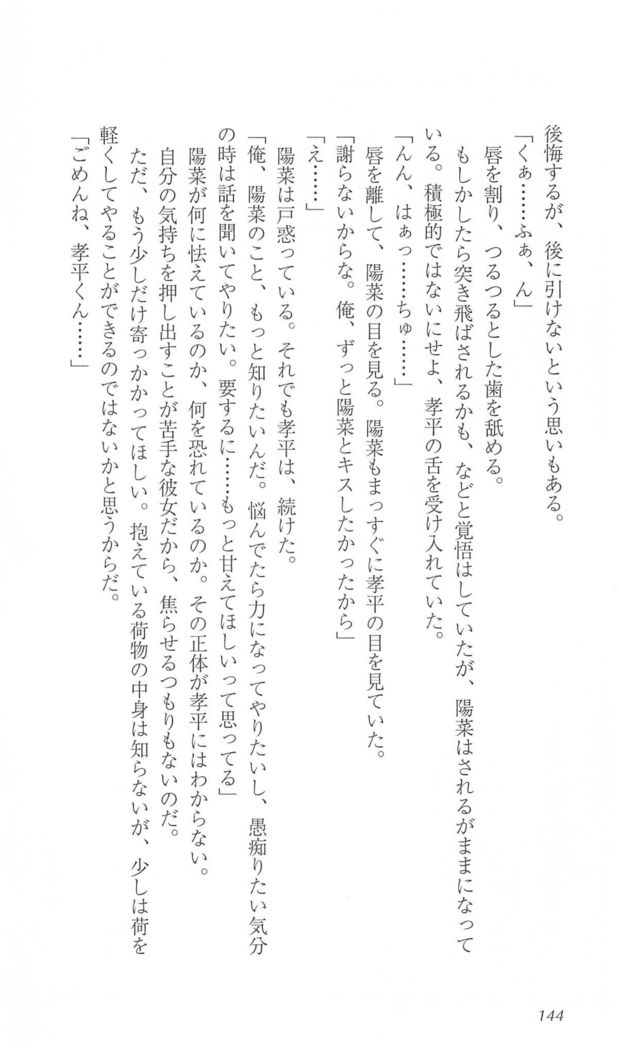 後悔するが、後に引けないという思いもある。
「くぁ……ふぁ、ん」
唇を割り、つるつるとした歯を舐める。
もしかしたら突き飛ばされるかも、などと覚悟はしていたが、陽菜はされるがままになって
いる。積極的ではないにせよ、孝平の舌を受け入れていた。
「んん、はぁっ……ちゅ……」
唇を離して、陽菜の目を見る。陽菜もまっすぐに孝平の目を見ていた。
「謝らないからな。俺、ずっと陽菜とキスしたかったから」
「え……」
陽菜は戸惑っている。それでも孝平は、続けた。
「俺、陽菜のこと、もっと知りたいんだ。悩んでたら力になってやりたいし、愚痴りたい気分
の時は話を聞いてやりたい。要するに……もっと甘えてほしいって思ってる」
陽菜が何に怯えているのか、何を恐れているのか。その正体が孝平にはわからない。
自分の気持ちを押し出すことが苦手な彼女だから、焦らせるつもりもないのだ。
ただ、もう少しだけ寄っかかってほしい。抱えている荷物の中身は知らないが、少しは荷を
軽くしてやることができるのではないかと思うからだ。
「ごめんね、孝平くん……」
144